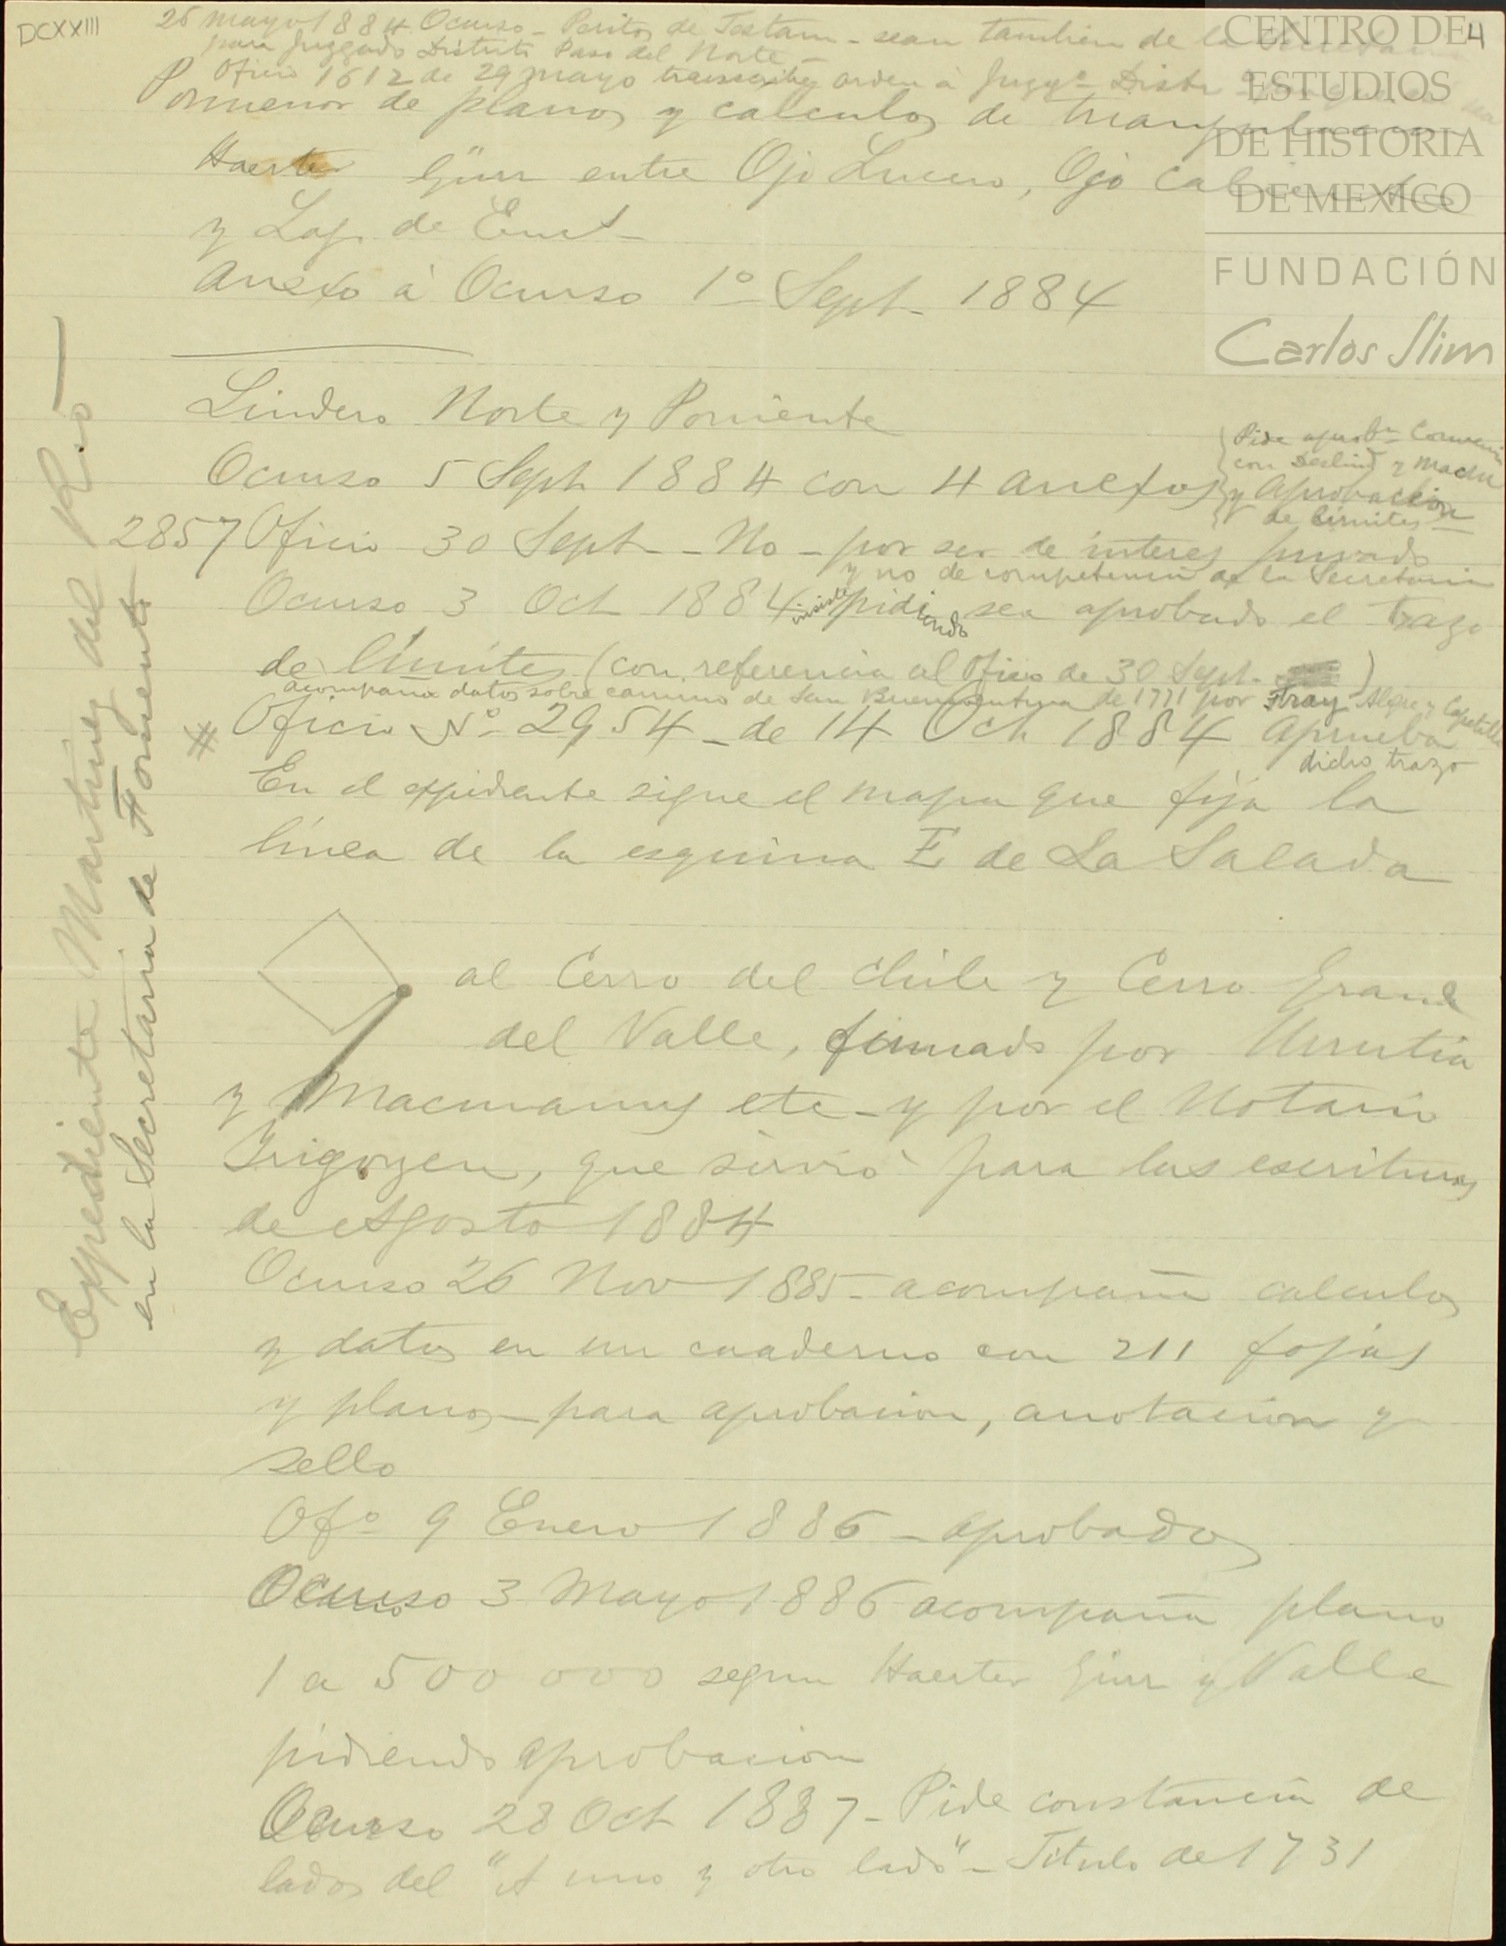 DCXXIII
4
CENTRO DE
ESTUDIOS
DE HISTORIA
DE MEXICO
FUNDACIÓN
Carlos Slim
26 mayo 1884 Ocurso - Peritos de Testam - sean tambien de la
para Juzgado Distrito Paso del Norte -
Oficio 1612 de 29 mayo transcribe orden á Juzgº Distr
Pormenor de planos y calculos de triangulacion
Haerter Gürr entre Ojo Lucero, Ojo Caliente
y Lag. de Enct -
Anexo á Ocurso 1º Sept - 1884
Lindero Norte y Poniente
Ocurso 5 Sept 1884 con 4 anexos
Pide aprobn
con Deslind y Macm
y Aprobacion
de límites -
2857 Oficio 30 Sept - No - por ser de interes privado
y no de competencia de la Secretaria
Ocurso 3 Oct 1884 insiste pidiendo sea aprobado el trazo
de límites (con referencia al Oficio de 30 Sept. )
acompaña datos sobre camino de San Buenaventura de 1771 por Fray
# Oficio Nº 2954 - de 14 Oct 1884 aprueba
dicho trazo
En el expediente sigue el mapa que fija la
línea de la esquina E de La Salada
al Cerro del Chile y Cerro Grande
del Valle, firmado por Urrutia
y Macmanus etc - y por el Notario
Irigoyen, que sirvió para las escrituras
de Agosto 1884
Ocurso 26 Nov 1885 - acompaña calculos
y datos en un cuaderno con 211 fojas
y planos - para aprobacion, anotacion y
sello
Ofº 9 Enero 1886 - aprobados
Ocurso 3 Mayo 1886 acompaña plano
1 a 500 000 segun Haerter Gürr y Valle
pidiendo aprobacion
Ocurso 28 Oct 1887 - Pide constancia de
lados del "A uno y otro lado" - Titulo de 1731
Expediente Martinez del Rio -
en la Secretaria de Fomento